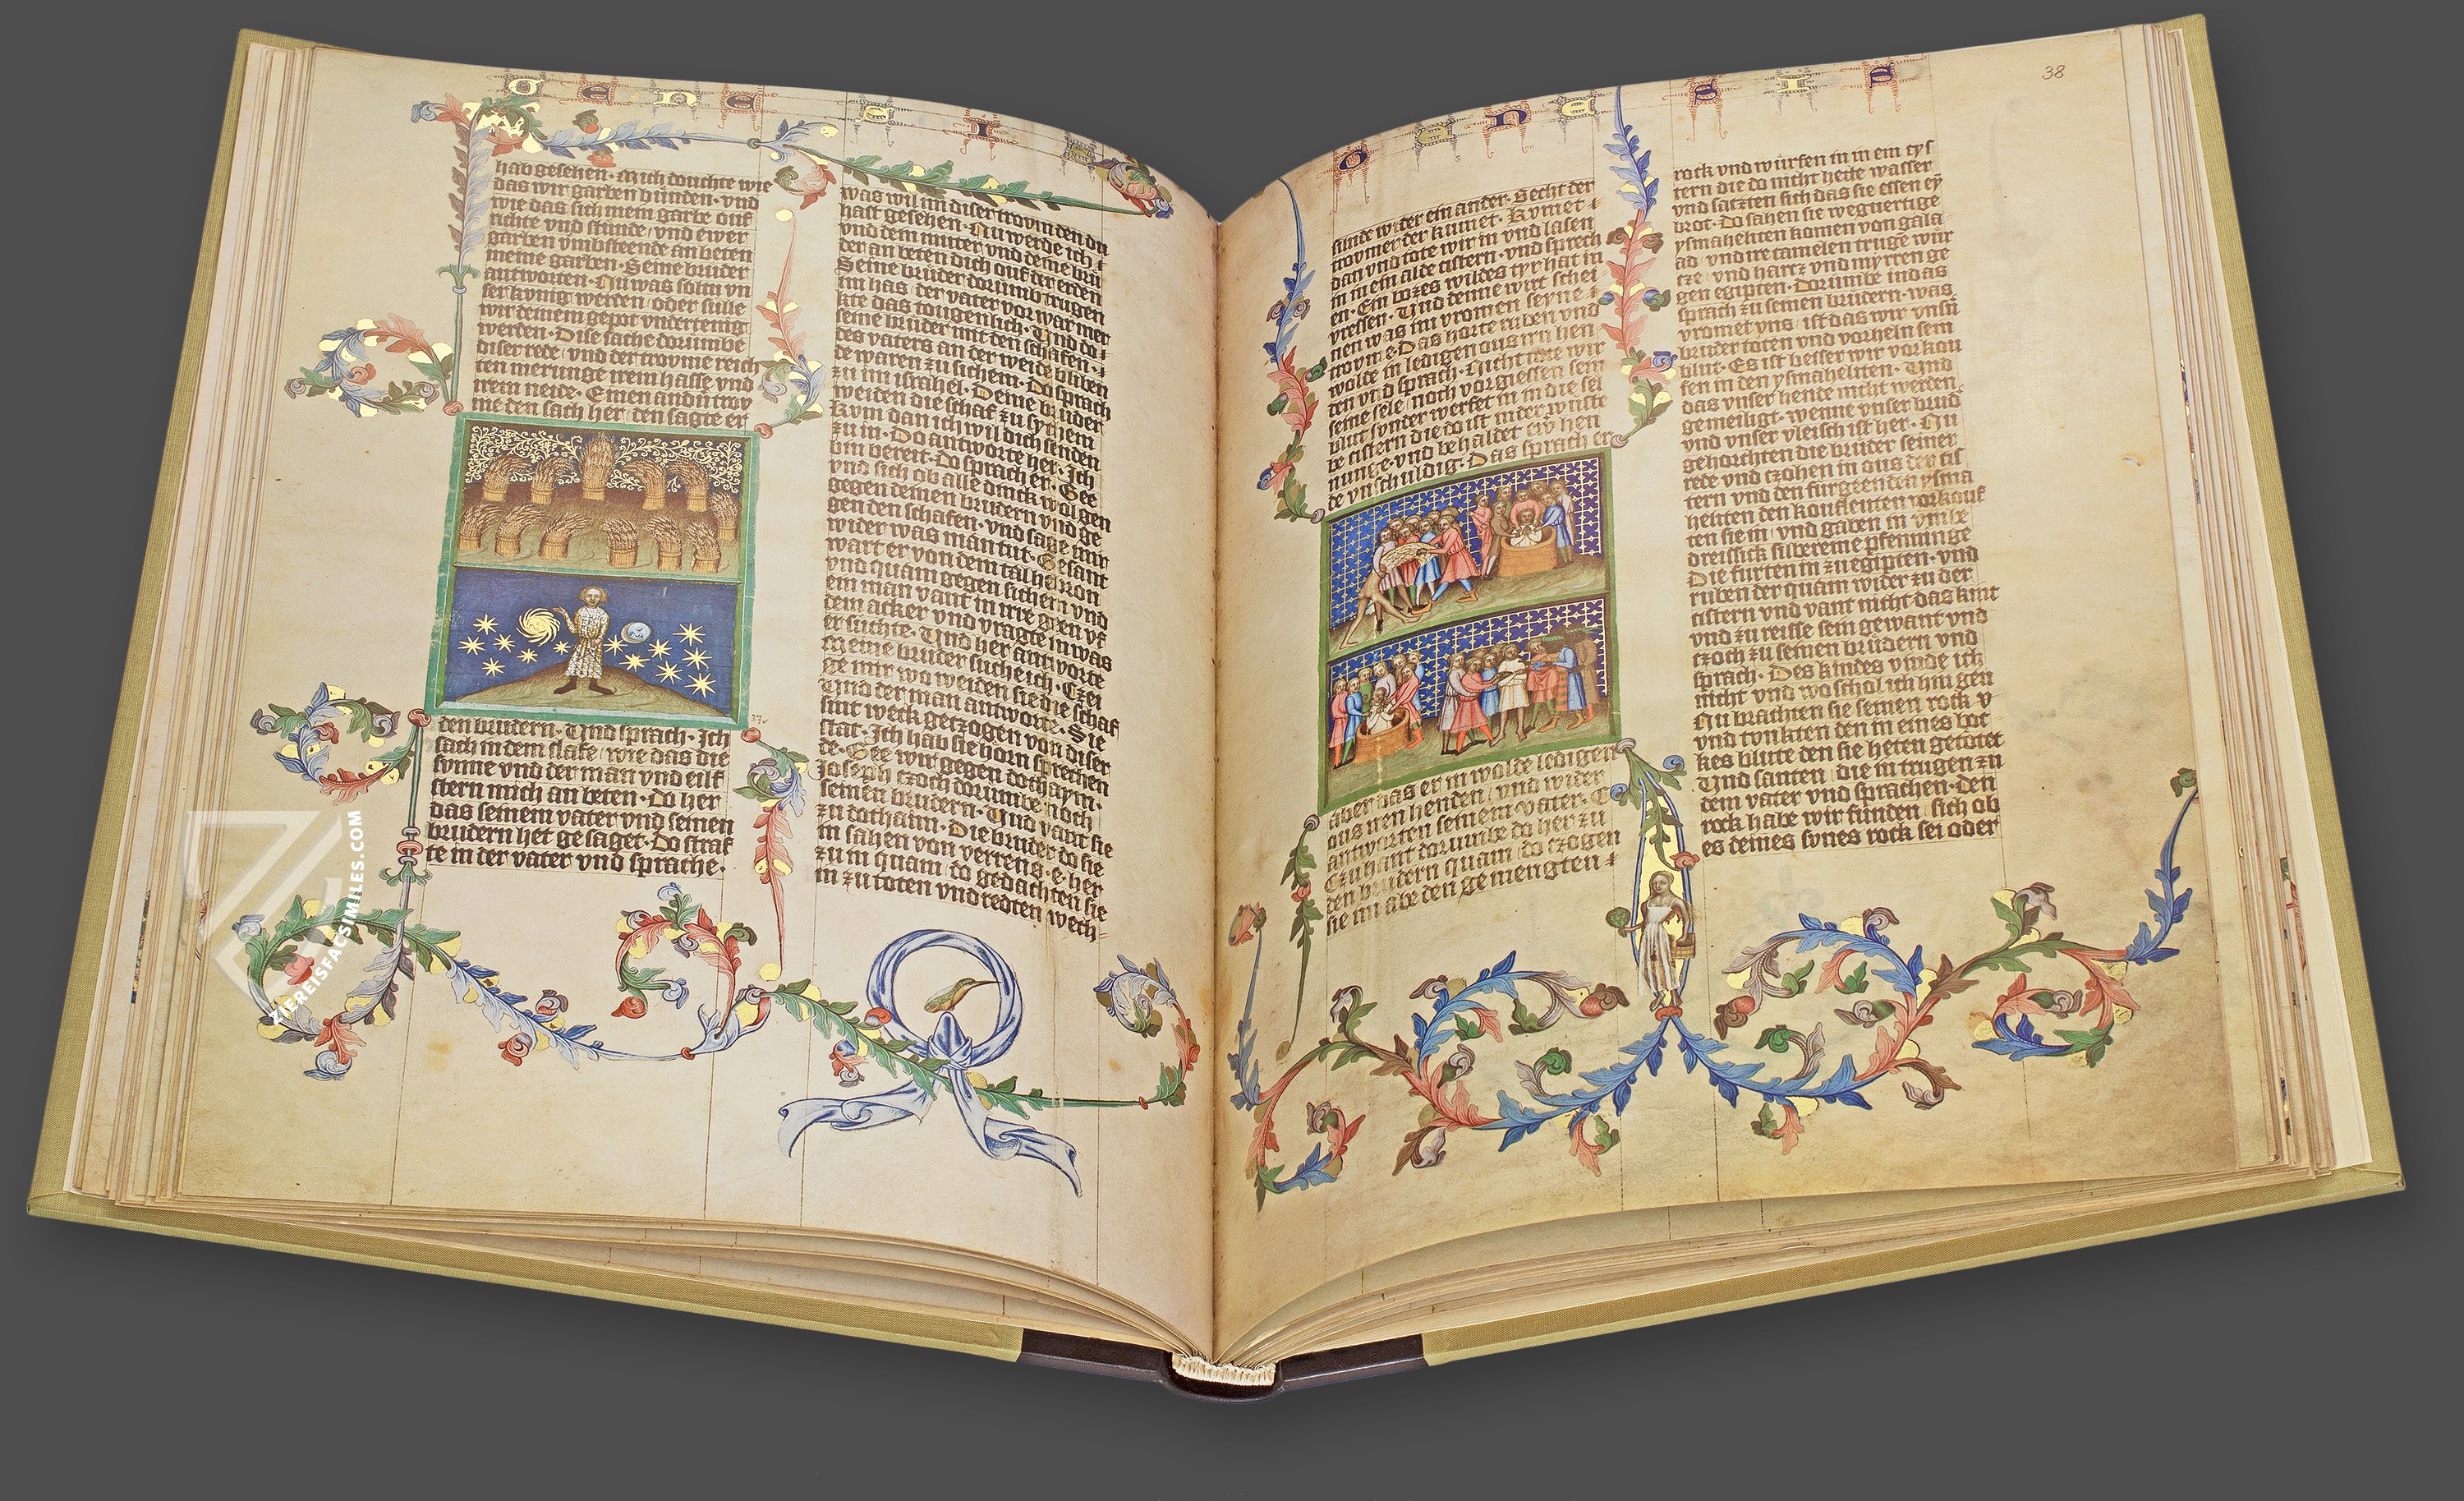 G E N E S I S
hab gesehen · Mich douchte wie
das wir garben bunden · vnd
wie das sich mein garbe ouf
richte vnd stunde / vnd ewer
garben vmbsteende an beten
meine garben · Seine bruder
antworten · Nu was soltu vn
ser kunig werden / oder sulle
wir deinem gepot vndertenig
werden · Dise sache dorumbe
diser rede / vnd der trovme reich
ten merunge irem hasse vnd
irem neide · Einen andn trov
me den sach her / den sagte er
den brudern · Vnd sprach · Ich
sach in dem slafe / wie das die
sunne vnd der man vnd eilf
stern mich an beten · Do her
das seinem vater vnd seinen
brudern het gesaget · Do straf
te in der vater vnd sprache ·
was wil im diser trovm den du
hast gesehen · Nu werde ich
vnd dein muter vnd deine bru
der an beten dich ouf der erden
Seine bruder dorumb trugen
im has / der vater vorwar mer
kte das tougenlich · Vnd do
seine bruder mit den schafen
des vaters an der weide bliben
de waren zu sichem · Do sprach
zu im israhel · Deine bruder
weiden die schaf zu sychem
kum dan ich wil dich senden
zu in · Do antworte her · Ich
bin bereit · Do sprach er · Gee
vnd sich ob alle dinck wol gen
gegen deinen brudern vnd ge
gen den schafen · vnd sage mir
wider was man tut · Gesant
wart er von dem tal hebron
vnd quam gegen sichem vnd
ein man vant in irre gen vf
dem acker vnd vragte in was
er suchte · Vnd her antworte
meine bruder suche ich · Czei
ge mir wo weiden sie die schaf
Vnd der man antworte · Sie
sint weck geczogen von diser
stat · Ich hab sie horn sprechen
de · Gee wir gegen dothaym ·
Joseph czoch dorumbe noch
seinen brudern · Vnd vant sie
zu dothaim · Die bruder do sie
in sahen von verrens · e her
zu in quam / do gedachten sie
in zu toten vnd redten wech
37v
G E N E S I S
38
sunde wider ein ander · Secht der
trovmer der kumet · Kumet
dan vnd tote wir in vnd lasen
in in ein alde cistern · vnd sprech
en · Ein bozes wildes tyr hat in
vressen · Vnd denne wirt schei
nen was im vromen seyne
trovme · Das horte ruben vnd
wolde in ledigen ous irn hen
den vnd sprach · Nicht tote wir
seine sele / noch vorgiessen sein
blut / sunder werfet in in die sel
be cistern die do ist in der wuste
nunge · vnd behaldet ewr hen
de vnschuldig · Das sprach er
aber das er in wolde ledigen
ous iren henden / vnd wider
antworten seinem vater · C
Czuhant dorumbe do her zu
den brudern quam / do czogen
sie im abe den gemengten
rock vnd wurfen in in ein cys
tern die do nicht hette wasser
vnd satzten sich das sie essen ey
brot · Do sahen sie wegvertige
ysmaheliten komen von gala
ad / vnd ire camelen truge wur
cze / vnd hartz vnd myrren ge
gen egipten · Dorumbe iudas
sprach zu seinen brudern · was
vromet vns / ist das wir vnsn
bruder toten vnd vorheln sein
blut · Es ist besser wir vorkou
fen in den ysmaheliten · Vnd
das vnser hende nicht werden
gemeiligt · wenne vnser brud
vnd vnser vleisch ist her · Nu
gehorchten die bruder seiner
rede vnd czohen in ous der cis
tern vnd den furgeenden ysma
heliten den koufleuten vorkouf
ten sie in / vnd gaben in vmbe
dreissick silbereine pfenninge
Die furten in zu egipten · vnd
ruben der quam wider zu der
cistern vnd vant nicht das kint
vnd zu reisse sein gewant vnd
czoch zu seinen brudern vnd
sprach · Des kindes vinde ich
nicht vnd wo schol ich hin gen
Nu brachten sie seinen rock v
vnd tunkten den in eines boc
kes blute den sie heten getotet
Vnd santen / die in trugen zu
dem vater vnd sprachen · den
rock habe wir funden / sich ob
es deines sunes rock sei oder
ZIEREISFACSIMILES.COM